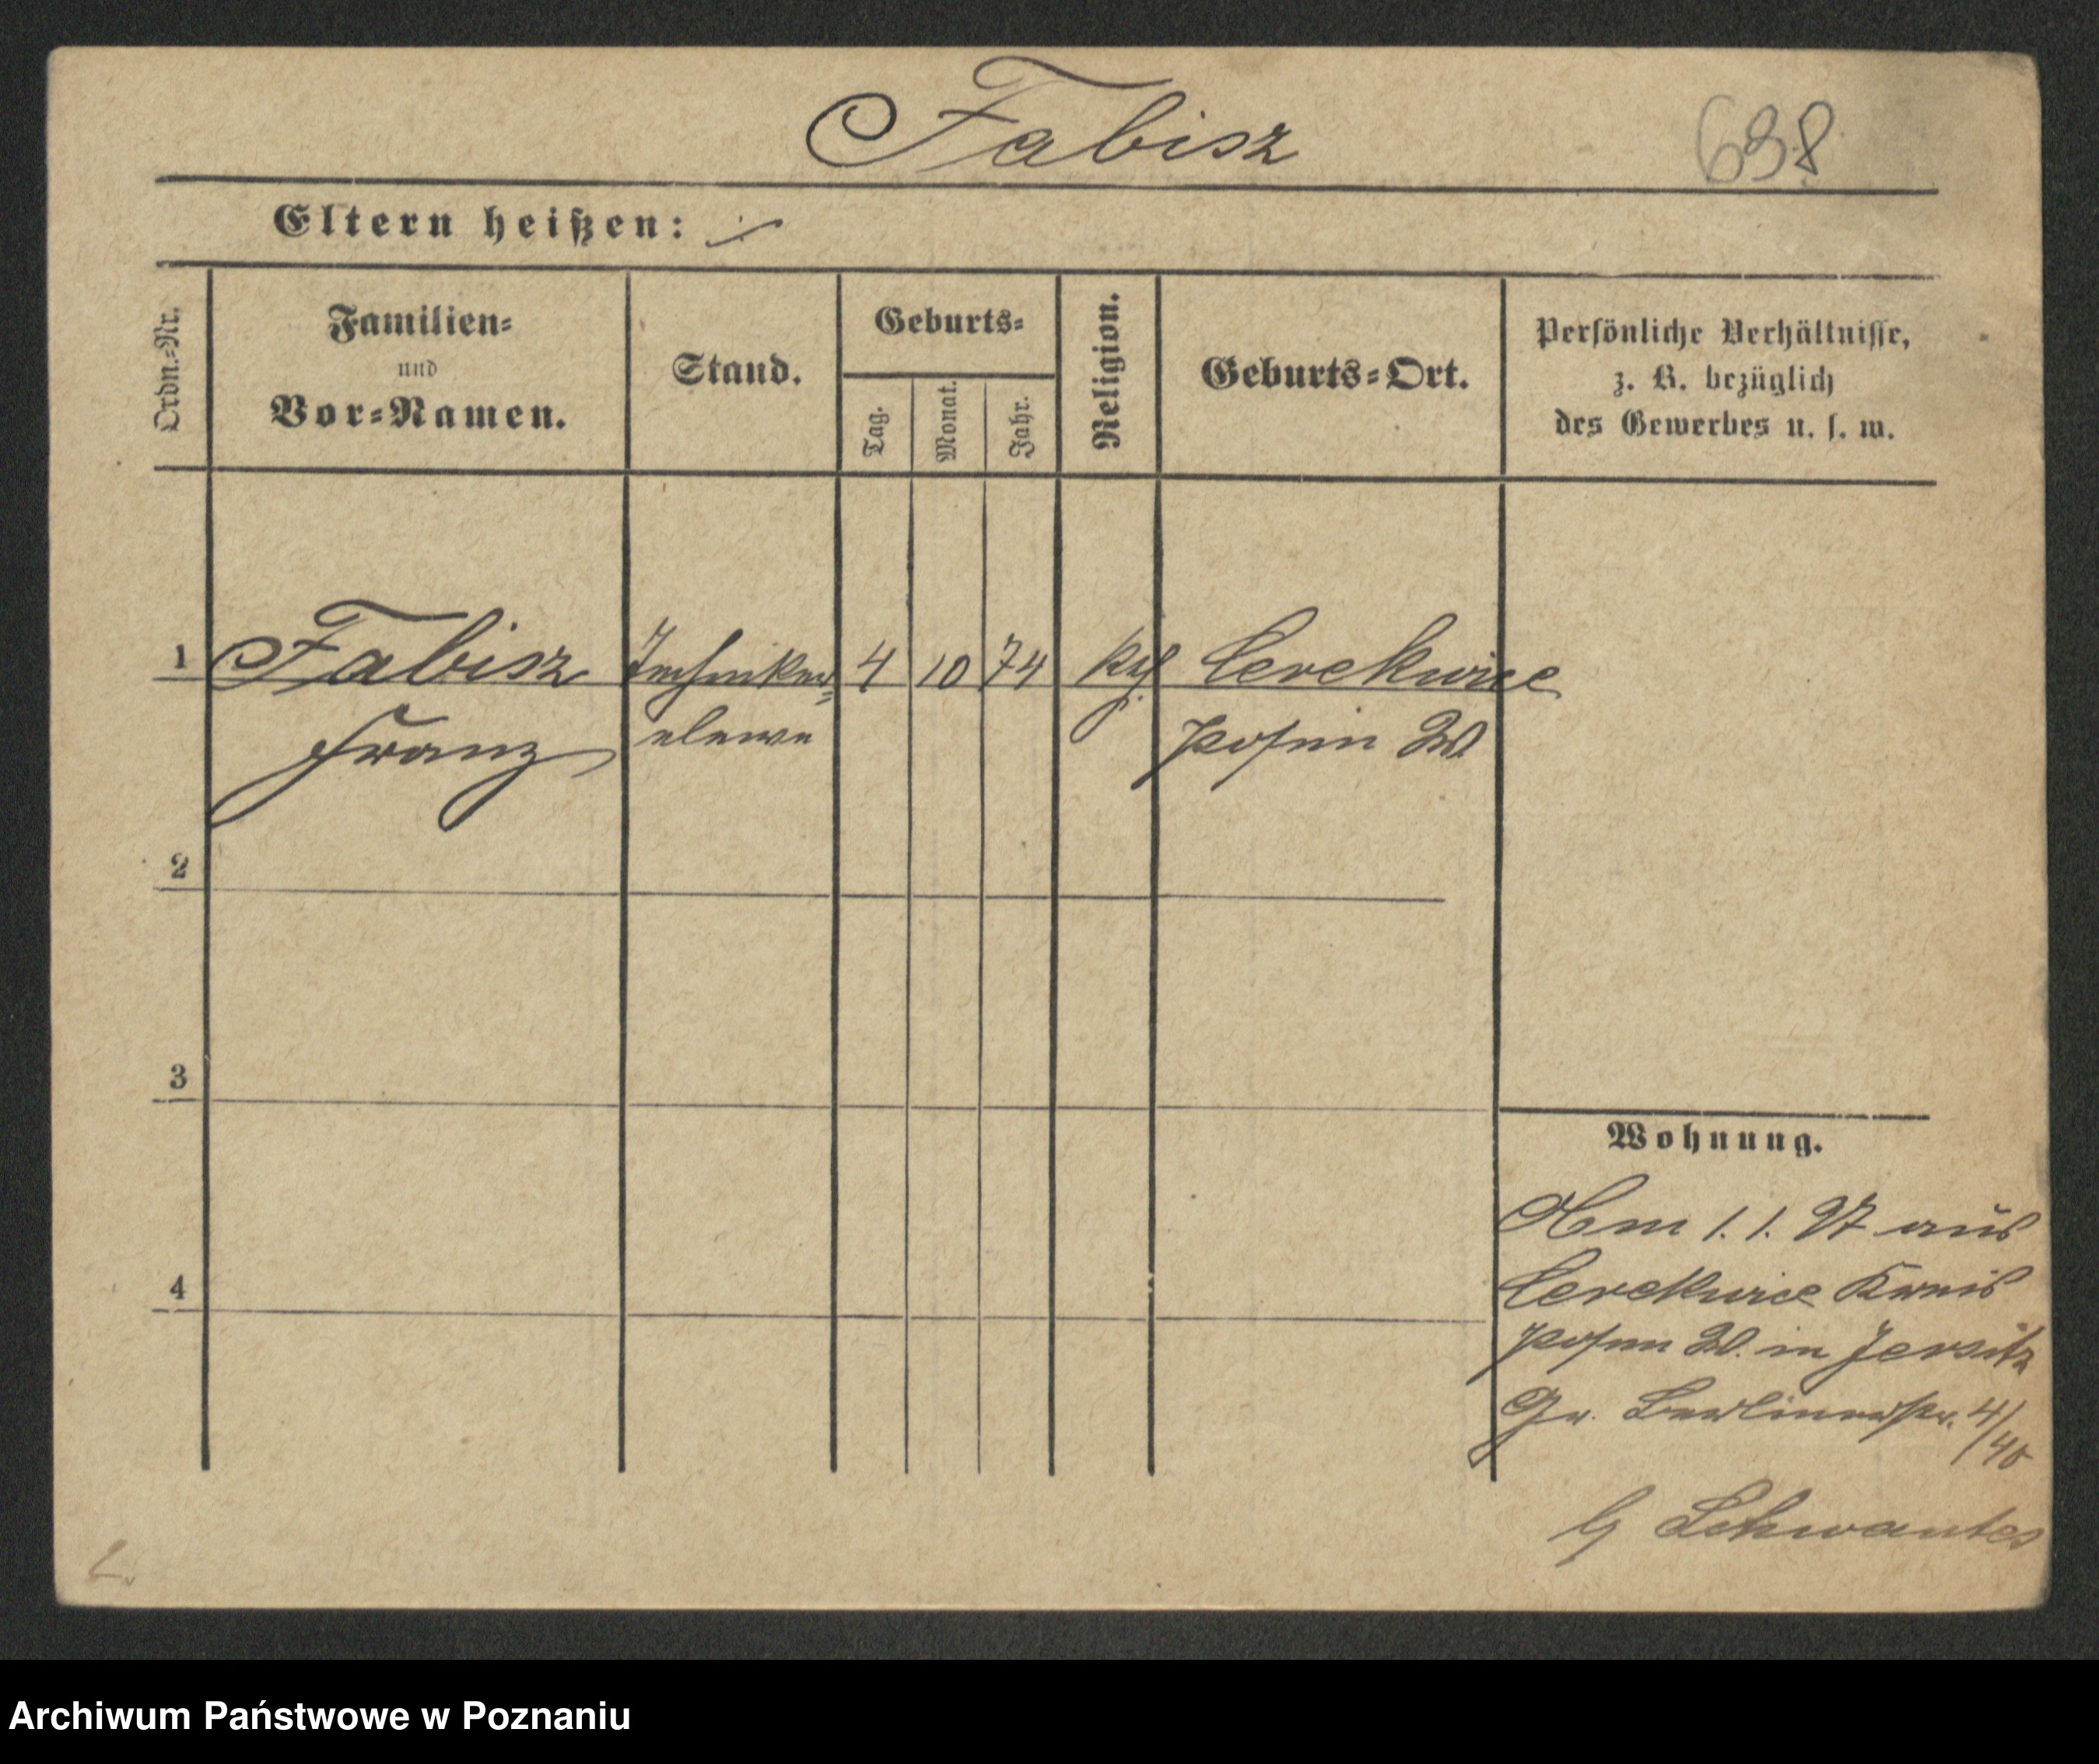 Fabisz
698
Eltern heißen: ·/·
Ordn.=Nr.
Familien=
und
Vor=Namen.
Stand.
Geburts=
Tag.
Monat.
Jahr.
Religion.
Geburts=Ort.
Persönliche Verhältnisse,
z. B. bezüglich
des Gewerbes u. s. w.
1 Fabisz Techniker= 4 10 74 kth Cerekwice
Franz eleve Posen W.
2
3
4
Wohnung.
Am 1. 1. 97 aus
Cerekwice Kreis
Posen W. in Jersitz
Gr. Berlinerstr. 4/40
b/ Schwantes
Archiwum Państwowe w Poznaniu